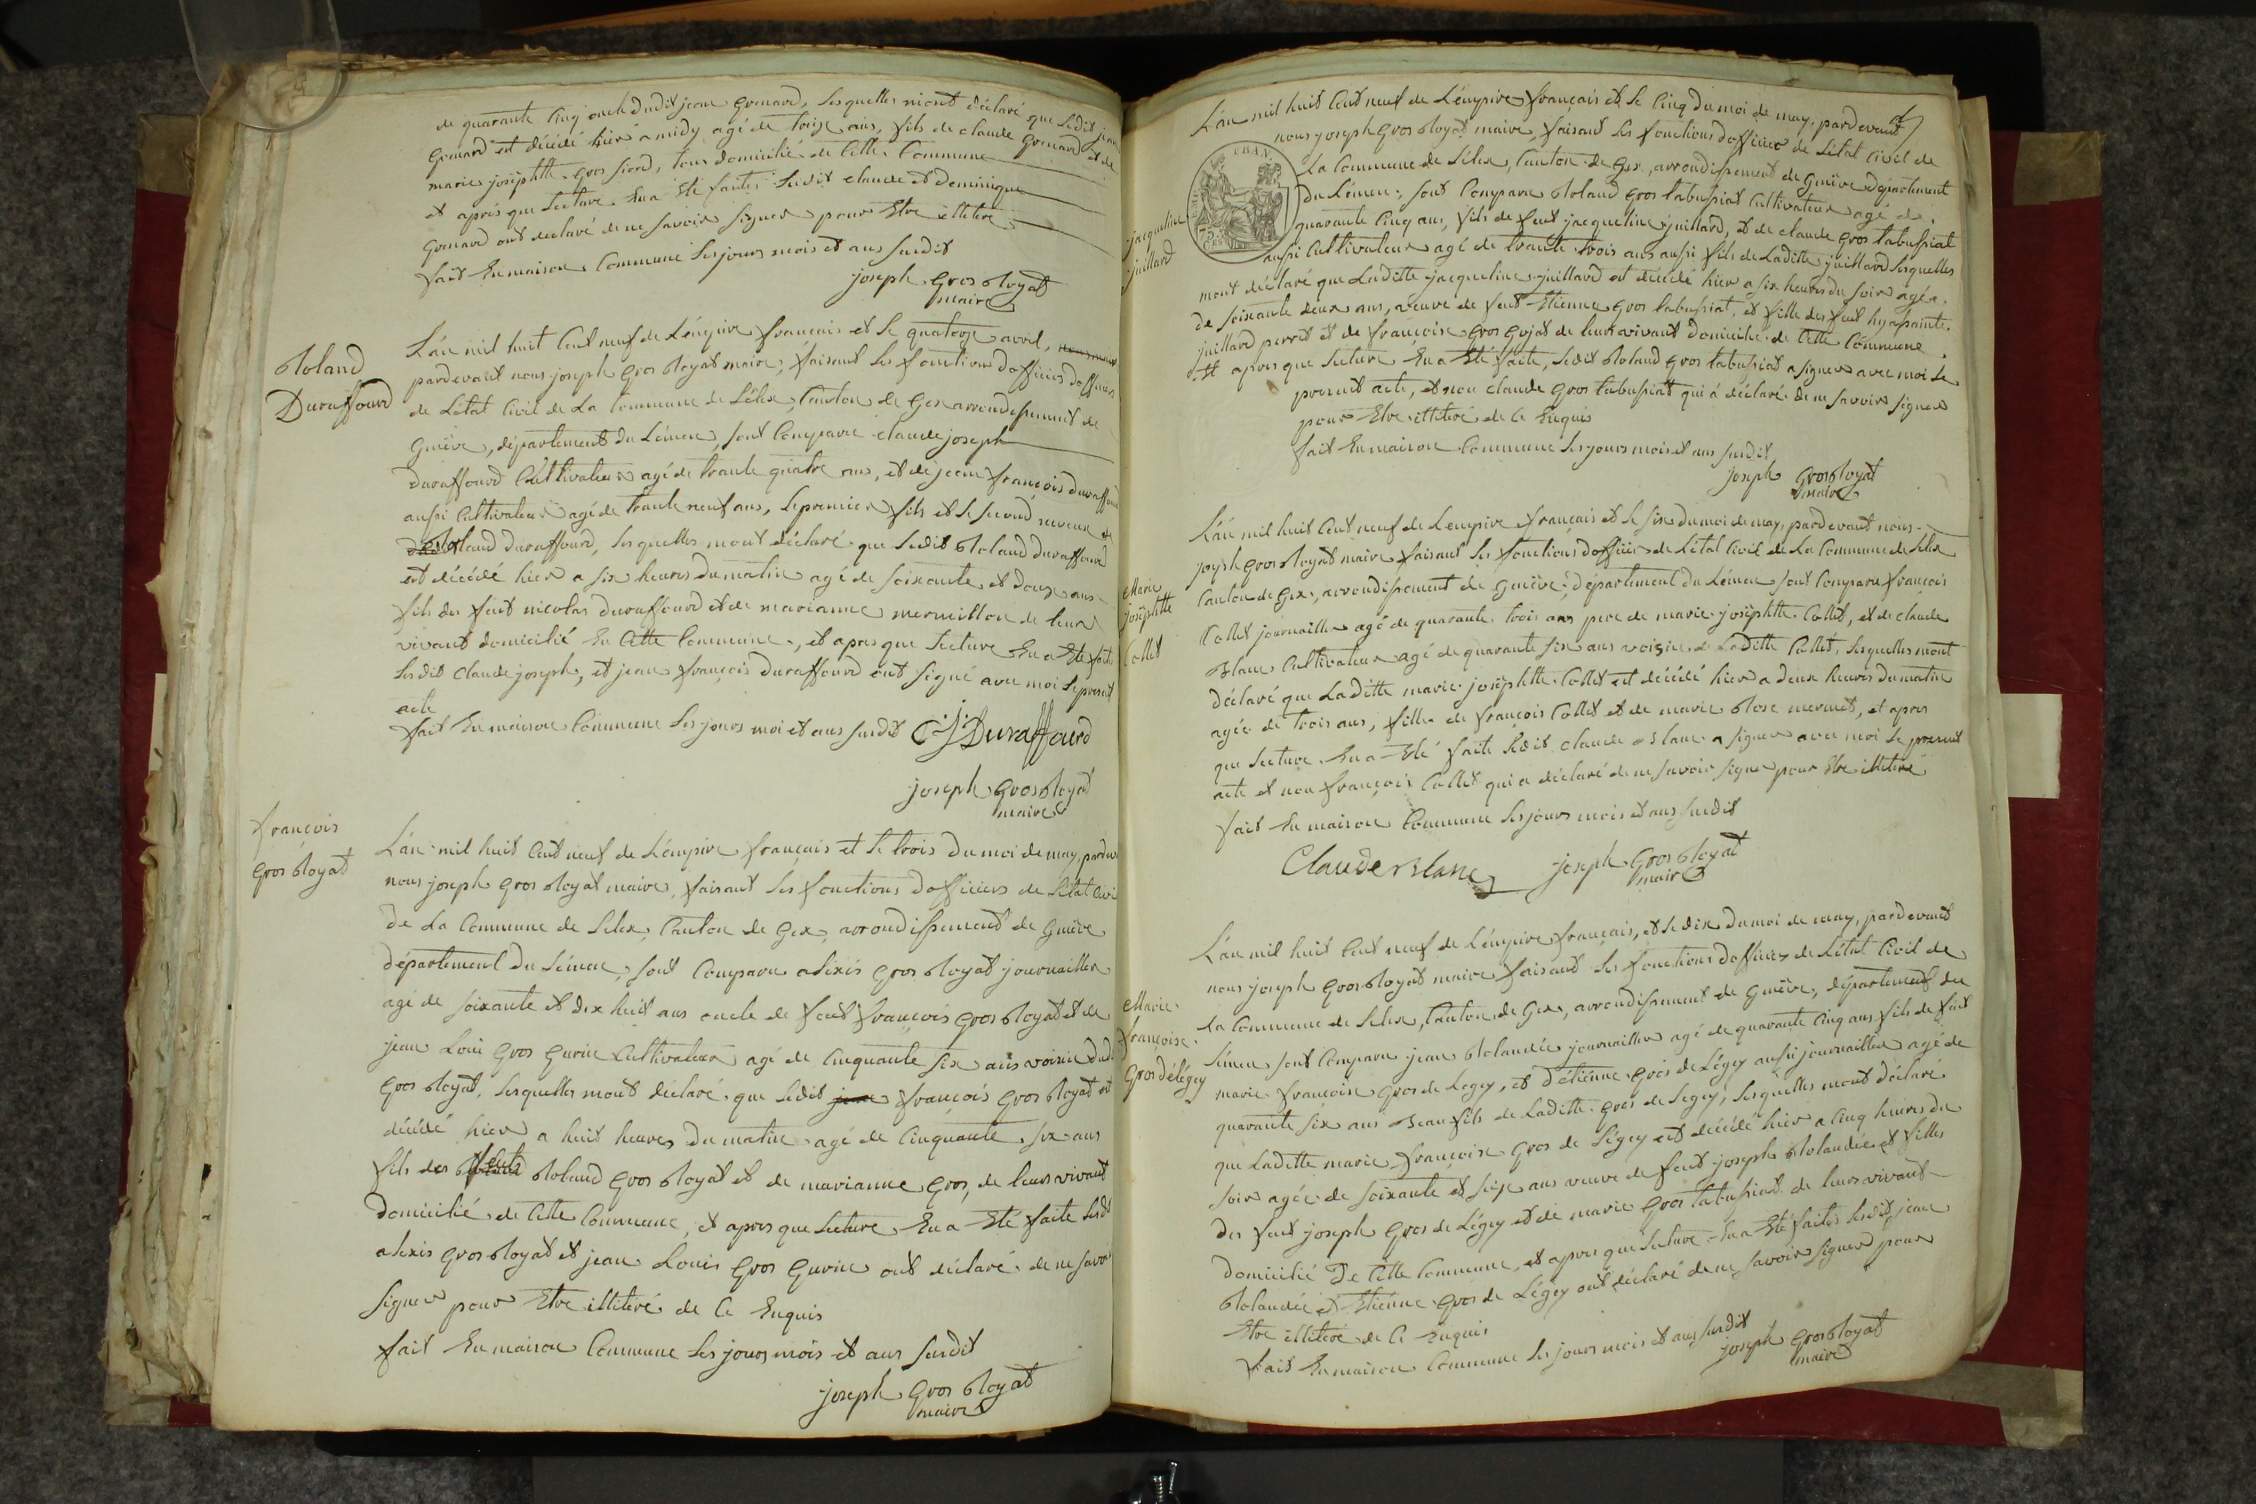 de quarante cinq oncle dudit jean gromard, lesquelles mont déclaré que ledit jean
gromard est décédé hier a midy agé de treize ans, fils de claude gromard et de
marie josephtte gros fiord, tous domicilié de cette Commune
et aprés que lecture En a Eté faites lesdit claude et dominique
gromard ont declaré de ne savoir signer pour Etre illiteré
fait En maison Commune les jours mois et ans susdit
joseph gros Royat
maire
Roland
Duraffourd
L'an mil huit Cent neuf de L'empire français et le quatorze avril,
pardevant nous joseph gros Royat maire, faisant les fonctions d'officier d'officiers
de L'état Civil de La Commune de Lélex, Canton de Gex arrondissement de
genève, département du Léman, sont Comparu claude joseph
Duraffourd Cultivateur agé de trante quatre ans, et de jean françois duraffourd
aussi Cultivateur agé de trante neuf ans, le premier fils et le second neveux de
Roland duraffourd, lesquelles mont déclaré que ledit Roland duraffourd
est décédé hier a six heures du matin agé de soixante et douze ans
fils des fut nicolas duraffourd et de marianne mermillon de leur
vivant domicilié En Cette Commune, et apres que lecture En a Eté faite
lesdit claude joseph, et jean françois duraffourd ont signé avec moi le present
acte
fait En maison Commune les jours moi et ans susdit C. j. Duraffourd
joseph gros Royat
maire
françois
gros Royat
L'an mil huit Cent neuf de L'empire français et le trois du moi de may, pardeva
nous joseph gros Royat maire, faisant les fonctions d'officiers de L'état Civi
de La Commune de Lelex, Canton de Gex, arrondissement de genève
département du Léman, sont Comparu alixis gros Royat journaillier
agé de soixante et dix huit ans oncle de feut françois gros Royat et de
jean Loui gros gurin Cultivateur agé de Cinquante six ans voisin dudi
gros Royat, lesquelles mont déclaré que ledit jean françois gros Royat est
décédé hier a huit heures du matin agé de Cinquante six ans
fils des feut Roland gros Royat et de marianne gros, de leurs vivant
Domicilié de Cette Commune, et apres que lecture En a Eté faite lesdt
alexis gros Royat et jean Louis gros gurin ont déclaré de ne savoi
signer pour Etre illiteré de Ce Enquis
fait En maison Commune les jours mois et ans susdit
joseph gros Royat
maire
L'an mil huit Cent neuf de L'empire français et le Cinq du moi de may, pardevant
nous joseph gros Royat maire, faisant les fonctions d'officier de L'état Civil de
La Commune de Lélex, Canton de Gex, arrondissement de genève département
du Léman, sont Comparu Roland gros tabussiat Cultivateur agé de
jacqueline
juillard
quarante Cinq ans, fils de feut jacqueline juillard, et de claude gros tabussiat
aussi Cultivateur agé de trante trois ans aussi fils de Laditte juillard lesquelles
mont déclaré que Laditte jacqueline juillard est décédé hier a six heures du soir agée
de soixante deux ans, veuve de feut Etienne gros tabussiat, et fille des feut hyasainte
juillard perret et de françoise gros gojat de leurs vivant domicilié de Cette Commune
Et apres que lecture En a Eté faite, ledit Roland gros tabussiat a signer avec moi le
present acte, et non claude gros tabussiatt qui a déclaré de ne savoir signer
pour Etre illiteré de Ce Enquis
fait En maison Commune les jours mois et ans susdit
joseph gros Royat
maire
Marie
josephtte
Collet
L'an mil huit Cent neuf de L'empire français et le six du moi de may, pardevant nous
joseph gros Royat maire faisant les fonctions d'officier de L'état Civil de La Commune de Lélex
Canton de Gex, arrondissement de genève, département du Léman sont Comparu françois
Collet journaillier agé de quarante trois ans pere de marie josephtte Collet, et de claude
Blanc Cultivateur agé de quarante six ans voisin de Laditte Collet, lesquelles mont
déclaré que Laditte marie josephtte Collet est décédé hier a deux heures du matin
agée de trois ans, fille de françois Collet et de marie Rose mermet, et apres
que lecture En a Eté faite ledit claude Blanc a signer avec moi le present
acte et non françois Collet qui a déclaré de ne savoir signer pour Etre illiteré
fait En maison Commune les jours mois et ans susdit
Claude Blanc joseph gros Royat
maire
Marie
françoise
Gros délégey
L'an mil huit Cent neuf de L'empire français, et le dix du moi de may, pardevant
nous joseph gros Royat maire faisant les fonctions d'officier de L'état Civil de
La Commune de Lelex, Canton de Gex, arrondissement de genève, département du
Léman sont Comparu jean Rolandée journaillier agé de quarante Cinq ans fils de feut
marie françoise gros de Legey, et d'étienne gros de Légey aussi journaillier agé de
quarante six ans Beau fils de Laditte gros de Legey, lesquelles mont déclaré
que Laditte marie françoise gros de Légey est décédé hier a Cinq heures du
soir agée de soixante et seize ans veuve de feut joseph Rolandée, et filles
des feut joseph gros de Légey et de marie gros tabussiat de leurs vivant
domicilié De Cette Commune, et apres que lecture En a Eté faites lesdit jean
Rolandée et Etienne gros de Légey ont déclaré de ne savoir signer pour
Etre illiteré de Ce Enquis
fait En maison Commune les jours mois et ans susdit
joseph gros Royat
maire